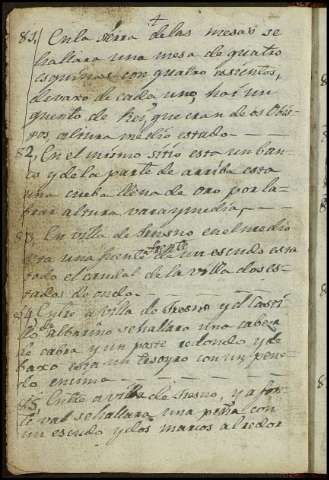 81, En la sierra + de las mesas se
hallara una mesa de quatro
esquinas con quatro asientos,
devaxo de cada uno, hai un
quento de Rei, que eran de os Obis-
pos, altura medio estado
82, En el mismo sitio esta un ban-
co y de la parte de arriba esta
una cueba llena de oro por la-
brar altura vara y media,
83, En villa de Fresno en el medio
esta una fuente frente de un escudo esta
todo el caudal de la villa dos es-
tados de ondo.
84, Entre a villa do Fresno y el Casti-
llo albarino se hallara una cabeza
de cabra y un poste redondo y de-
baxo esta un tesoyro con un pene-
do enzima
85, Entre a villa de Fresno, y a fon-
te val se hallara una peña con
un escudo y dos marcos alredor